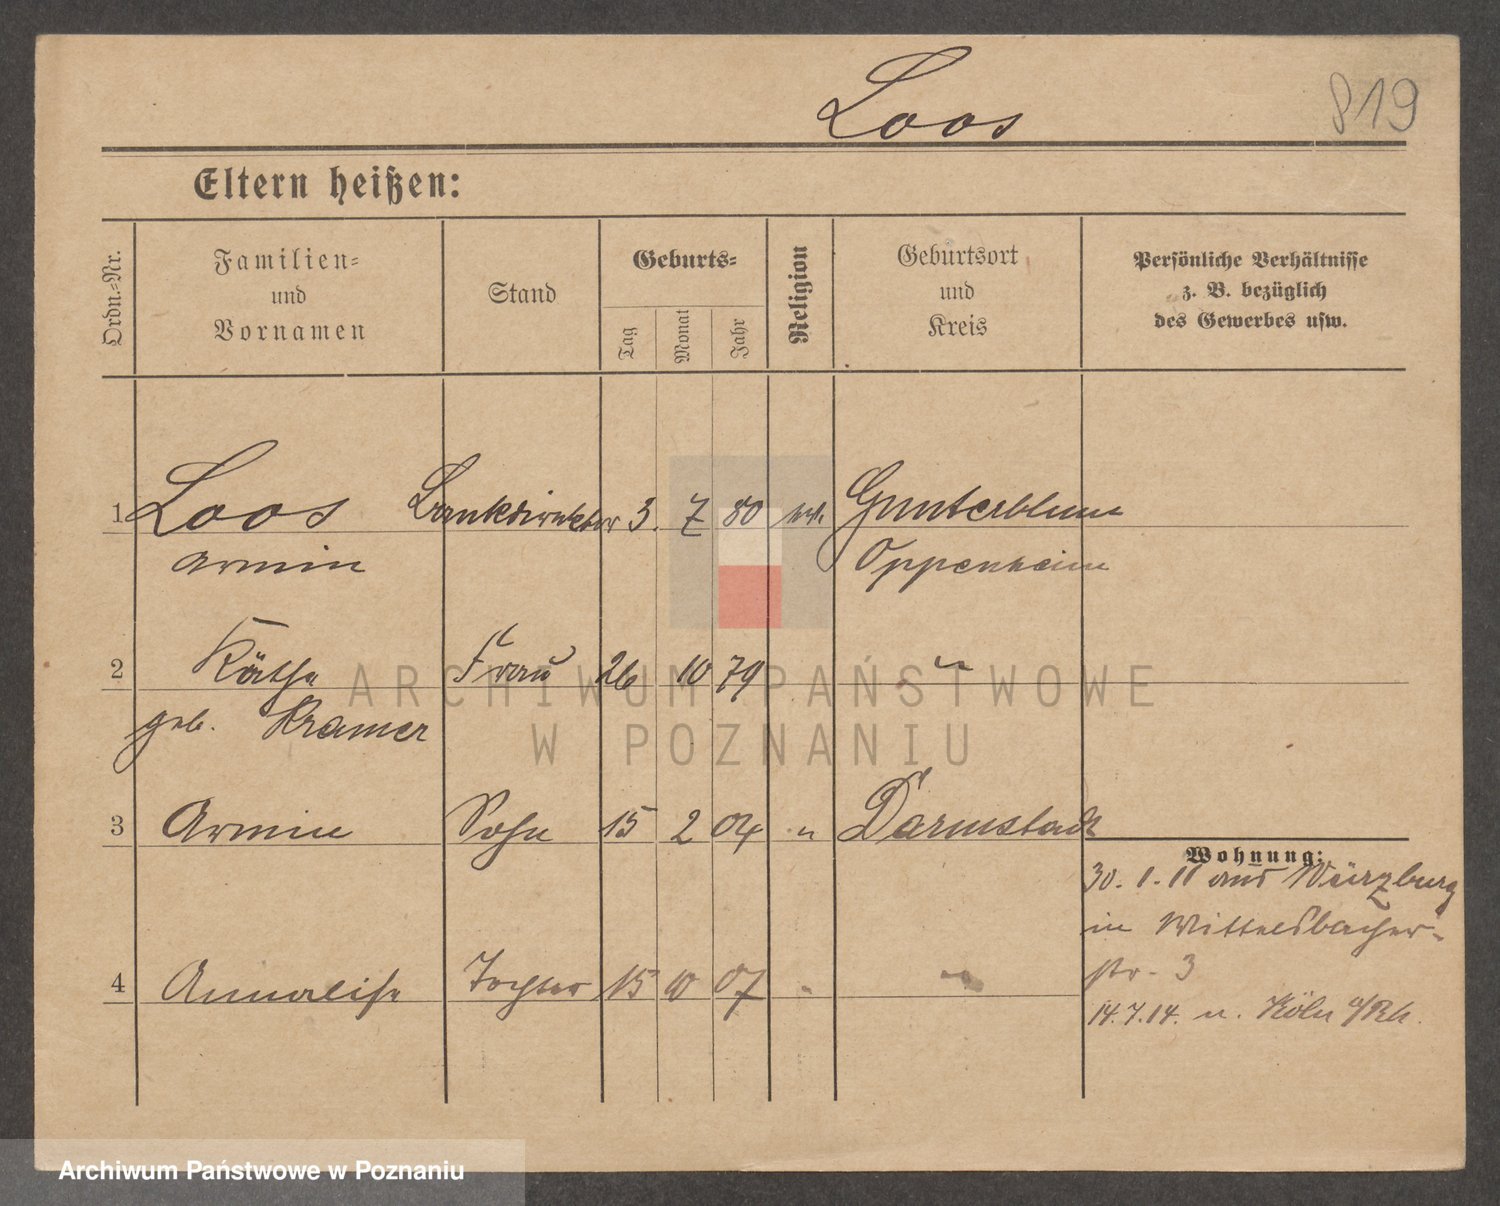 Loos
819
Eltern heißen:
Ordn.-Nr.
Familien-
und
Vornamen
Stand
Geburts-
Tag
Monat
Jahr
Religion
Geburtsort
und
Kreis
Persönliche Verhältnisse
z. B. bezüglich
des Gewerbes usw.
1 Loos Bankdirektor 3. 7 80 ev. Guntersblum
Armin Oppenheim
2 Käthe Frau 26 10 79 "
geb. Kramer
3 Armin Sohn 15 2 04 " Darmstadt
Wohnung:
30. 1. 11 aus Würzburg
in Wittelsbacher-
str. 3
4 Annaliese Tochter 15 10 07 " "
14.7.14. n. Köln a/Rh.
ARCHIWUM PAŃSTWOWE
W POZNANIU
Archiwum Państwowe w Poznaniu